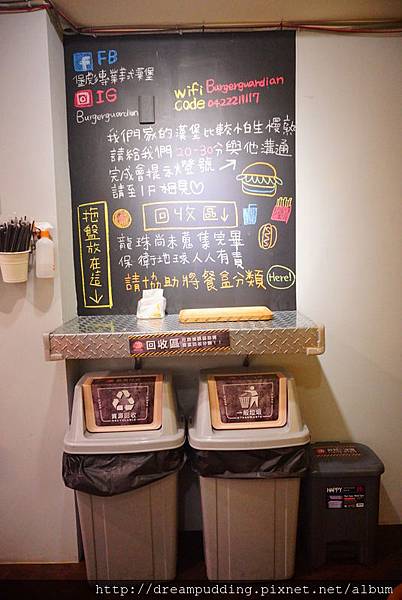 FB
堡彪專業美式漢堡
IG
Burgerguardian
wifi Burgerguardian
code 0422211117
我們家的漢堡比較小白生慢熟
請給我們 20-30分與他溝通
完成會提示燈號
請至1F相見♡
拖盤放在這
回收區↓
龍珠尚未蒐集完畢
保衛地球人人有責
請協助將餐盒分類 Here!
回收區
資源回收
一般垃圾
HAPPY
http://dreampudding.pixnet.net/album